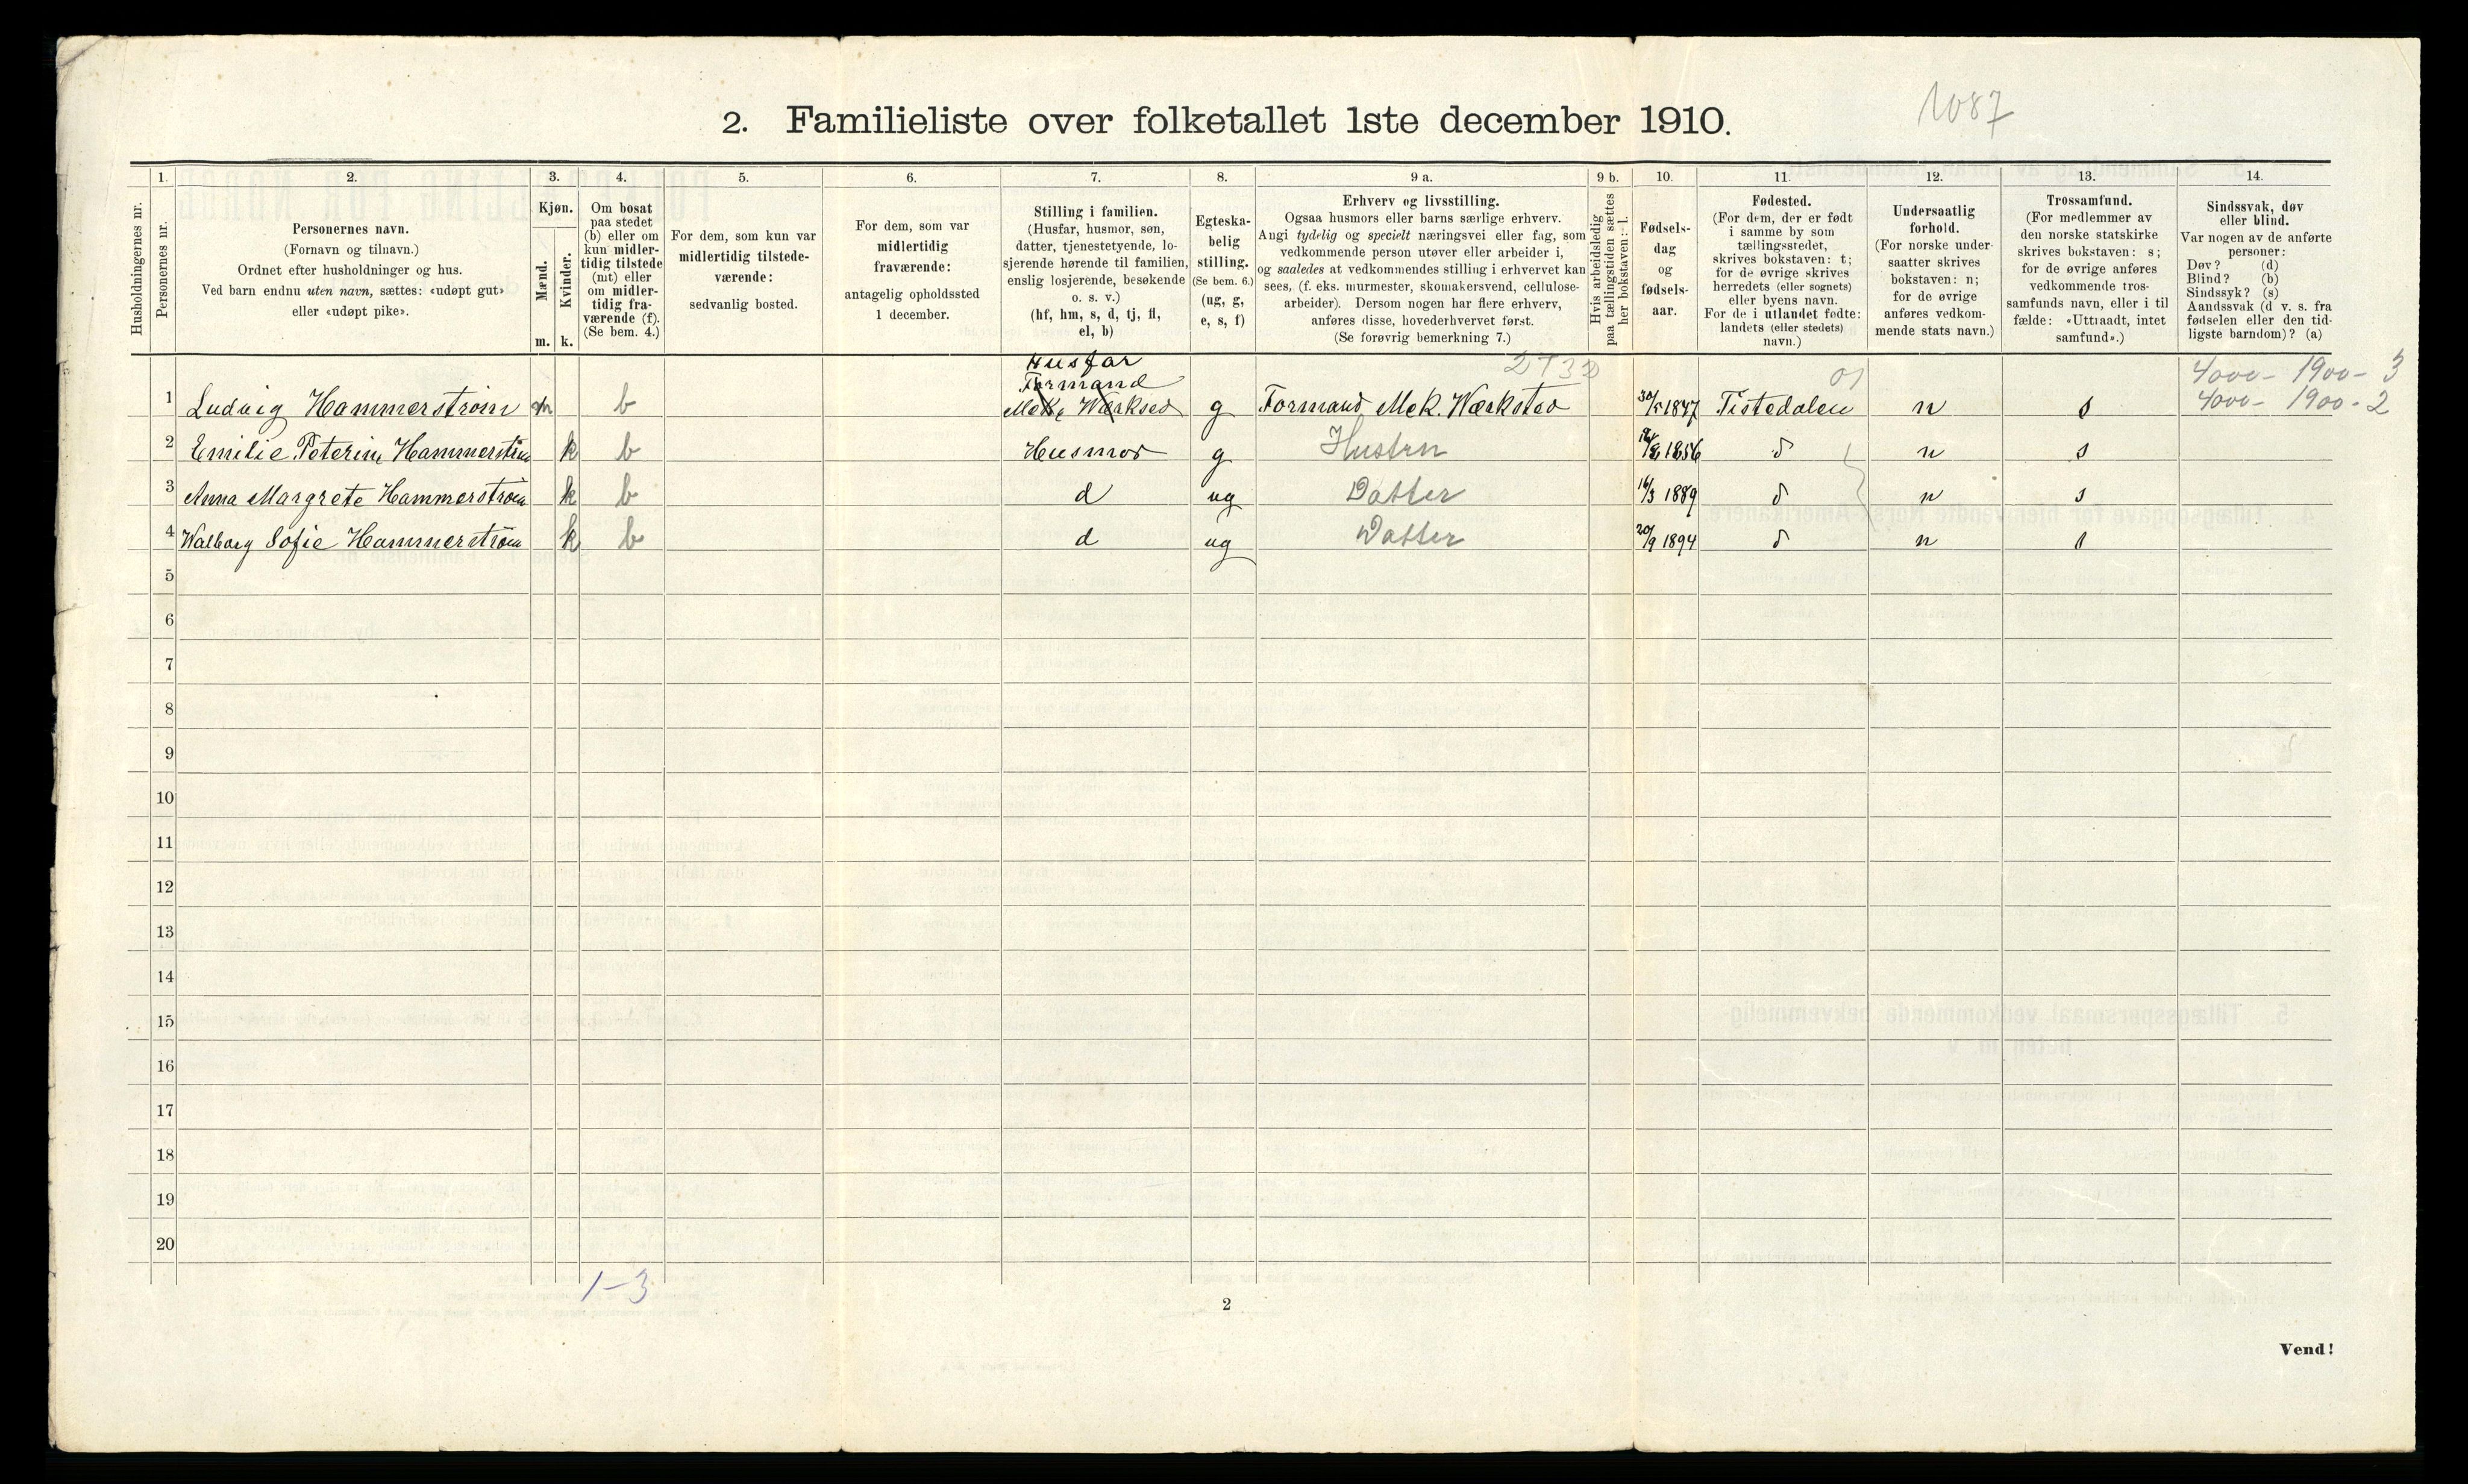 1087
2. Familieliste over folketallet 1ste december 1910.
1. 2. 3. 4. 5. 6. 7. 8. 9 a. 9 b. 10. 11. 12. 13. 14.
Husholdningernes nr.
Personernes nr.
Personernes navn.
(Fornavn og tilnavn.)
Ordnet efter husholdninger og hus.
Ved barn endnu uten navn, sættes: «udøpt gut»
eller «udøpt pike».
Kjøn.
Mænd.
Kvinder.
m. k.
Om bosat
paa stedet
(b) eller om
kun midler-
tidig tilstede
(mt) eller
om midler-
tidig fra-
værende (f).
(Se bem. 4.)
For dem, som kun var
midlertidig tilstede-
værende:
sedvanlig bosted.
For dem, som var
midlertidig
fraværende:
antagelig opholdssted
1 december.
Stilling i familien.
(Husfar, husmor, søn,
datter, tjenestetyende, lo-
sjerende hørende til familien,
enslig losjerende, besøkende
o. s. v.)
(hf, hm, s, d, tj, fl,
el, b)
Egteska-
belig
stilling.
(Se bem. 6.)
(ug, g,
e, s, f)
Erhverv og livsstilling.
Ogsaa husmors eller barns særlige erhverv.
Angi tydelig og specielt næringsvei eller fag, som
vedkommende person utøver eller arbeider i,
og saaledes at vedkommendes stilling i erhvervet kan
sees, (f. eks. murmester, skomakersvend, cellulose-
arbeider). Dersom nogen har flere erhverv,
anføres disse, hovederhvervet først.
(Se forøvrig bemerkning 7.)
Hvis arbeidsledig
paa tællingstiden sættes
her bokstaven: l.
Fødsels-
dag
og
fødsels-
aar.
Fødested.
(For dem, der er født
i samme by som
tællingsstedet,
skrives bokstaven: t;
for de øvrige skrives
herredets (eller sognets)
eller byens navn.
For de i utlandet fødte:
landets (eller stedets)
navn.)
Undersaatlig
forhold.
(For norske under-
saatter skrives
bokstaven: n;
for de øvrige
anføres vedkom-
mende stats navn.)
Trossamfund.
(For medlemmer av
den norske statskirke
skrives bokstaven: s;
for de øvrige anføres
vedkommende tros-
samfunds navn, eller i til
fælde: «Uttraadt, intet
samfund».)
Sindssvak, døv
eller blind.
Var nogen av de anførte
personer:
Døv? (d)
Blind? (b)
Sindssyk? (s)
Aandssvak (d v. s. fra
fødselen eller den tid-
ligste barndom)? (a)
Husfar
Formand 01 4000 - 1900 - 3
1 Ludvig Hammerstrøm m b Mek. Værksted g Formand Mek. Værksted 30/5 1847 Tistedalen n s 4000 - 1900 - 2
2 Emilie Peterine Hammerstrøm k b Husmor g Hustru 1856 d n s
3 Anna Margrete Hammerstrøm k b d ug Datter 16/3 1889 d n s
4 Walborg Sofie Hammerstrøm k b d ug Datter 20/9 1894 d n s
5
6
7
8
9
10
11
12
13
14
15
16
17
18
19
20
1-3
2
Vend!